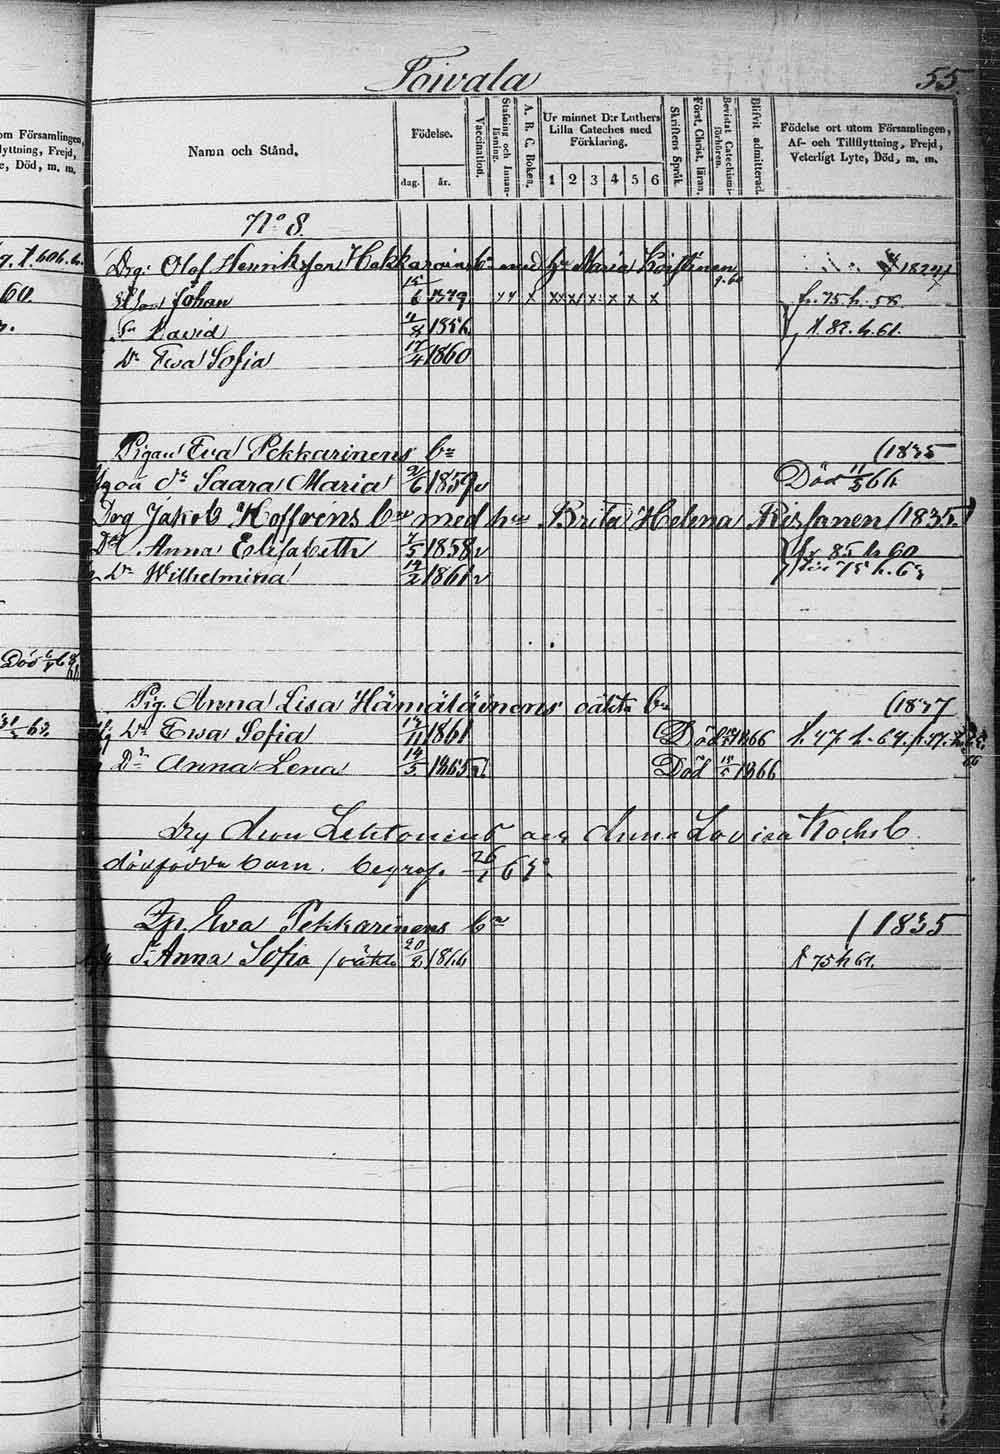 Toivala
55.
om Församlingen,
lyttning, Frejd,
e, Död, m. m.
Namn och Stånd.
Födelse.
dag. år.
Vaccination.
Stafning och Innanläsning.
A. B. C. Boken.
Ur minnet D:r Luthers
Lilla Cateches med
Förklaring.
1 2 3 4 5 6
Skriftens Språk.
Först. Christ. läran.
Bevistat Catechismiförhören.
Blifvit admitterad.
Födelse ort utom Församlingen,
Af- och Tillflyttning, Frejd,
Veterligt Lyte, Död, m. m.
N:o 8.
Drg. Olof Henriksson med hu Maria 1824
Johan 6 x x x x x x fr. 75. h. 58.
60.
David 1856 t. 82. h. 61.
Dr Ewa Sofia 17/4 1860
Pigan Eva Pekkarinens bn (1835
oä dr Saara Maria 1859 v Död 11/5 66
Drg Jakob Hoffréns bn med hu Brita Helena Rissanen (1835
Dr Anna Elisabeth 5 1858 v fr 85 h 60
Dr Wilhelmina 14/2 1861 v 75 h.
Död
Pig. Anna Lisa Hämäläinens oäkta bn (1837
Dr Ewa Sofia 11 1861 Död 1866 t. 47. h. 64.
63.
Dr Anna Lena 14/5 1865 Död 1866
Drg Aron Lehtonens och Anna Lovisa Kochs b.
dödfödda barn. begrof. 26/1 65.
Qp. Eva Pekkarinens bn (1835
dr Anna Sofia (oäkta 20/2 1866 t 75 h 67.